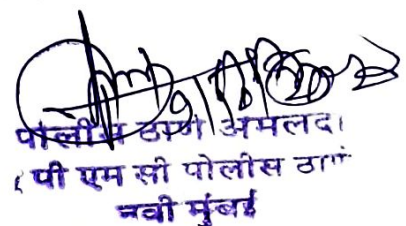 पोलीस ठाणे अमलदा
पी एम सी पोलीस ठाणे
नवी मुंबई